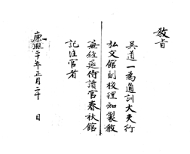 敎旨
吳道一爲通訓大夫行
弘文館副校理知製敎
兼經筵侍讀官春秋館
記注官者
康熙二十年正月二十日